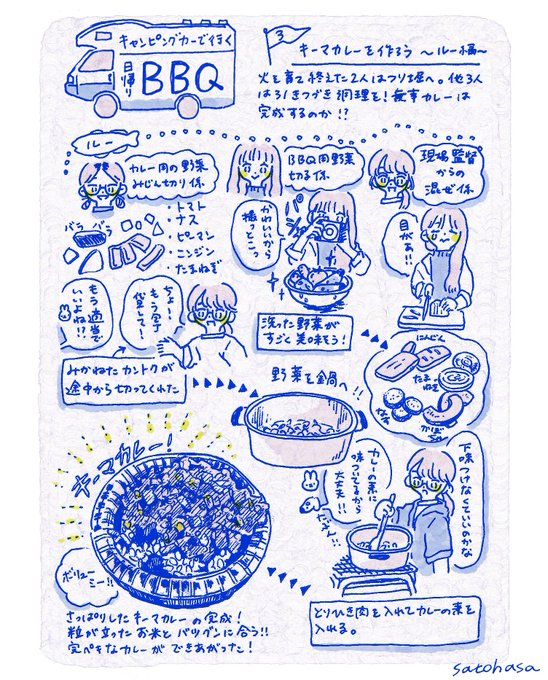 キャンピングカーで行く
日帰り
BBQ
3
キーマカレーを作ろう 〜ルー編〜
火を育て終えた2人はつり堀へ。他3人
はひきつづき調理を!無事カレーは
完成するのか!?
ルー
カレー用の野菜
みじん切り係
BBQ用野菜
切る係
現場監督
からの
混ぜ係
バラ バラ
・トマト
・ナス
・ピーマン
・ニンジン
・たまねぎ
かわいいから
撮っとこっ
目がぁ!!
洗った野菜が
すごく美味そう!
もう適当で
いいよね!?
ちょー
貸して〜
みかねたカントクが
途中から切ってくれた
にんじん
たま
ねぎ
かぼ
ちゃ
野菜を鍋へ!!
キーマカレー!
カレーの素に
味ついてるから
大丈夫!!
たぶん!!
下味つけなくていいのかな
ボリュー
ミー!!
とりひき肉を入れてカレーの素を
入れる。
さっぱりしたキーマカレーの完成!
粒が立ったお米とバツグンに合う!!
完ペキなカレーができあがった!
satohasa